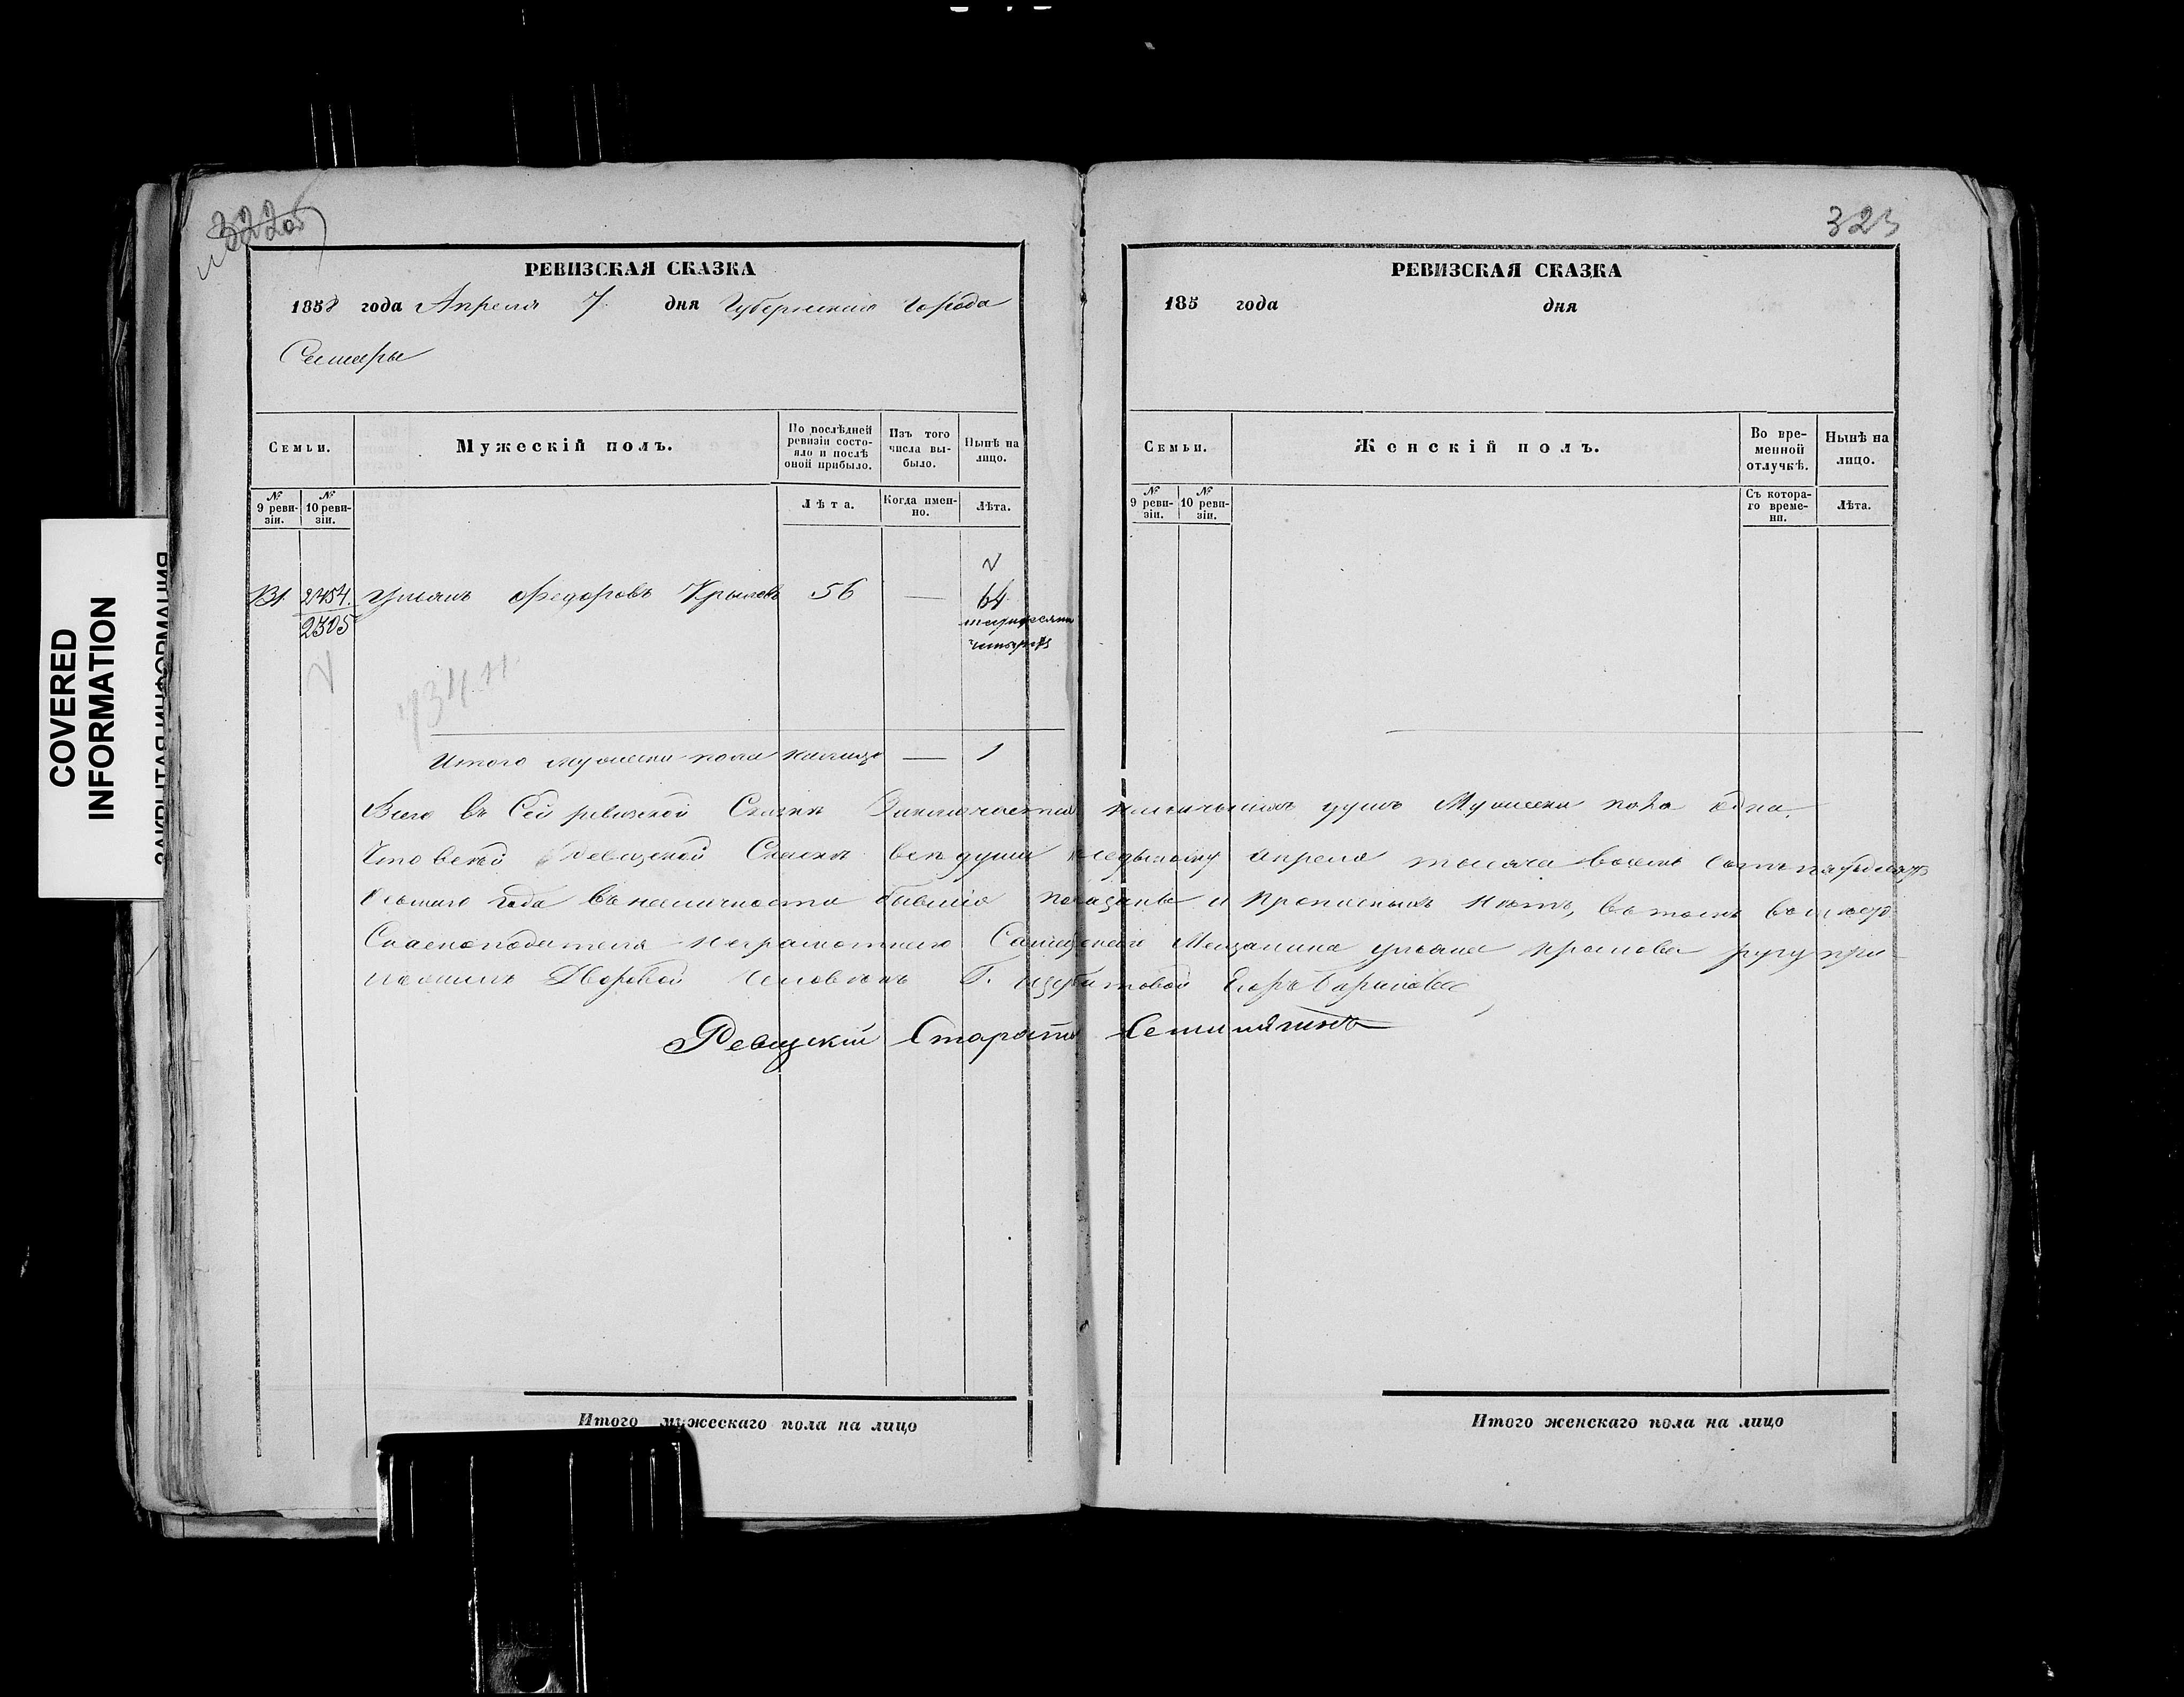 322об
323
РЕВИЗСКАЯ СКАЗКА
1858 года Апреля 7 дня Губернскаго города
Самары
Семьи.
Мужескій полъ.
По послѣдней ревизіи состояло и послѣ оной прибыло.
Изъ того числа выбыло.
Нынѣ на лицо.
№ 9 ревизіи.
№ 10 ревизіи.
Лѣта.
Когда именно.
Лѣта.
2454. Ульянъ Федоровъ Крыловъ 56 — 64
2305
шездесятъ
четыре
Итого мужеска пола налицо — 1
РЕВИЗСКАЯ СКАЗКА
185 года дня
Семьи.
Женскій полъ.
Во временной отлучкѣ.
Нынѣ на лицо.
№ 9 ревизіи.
№ 10 ревизіи.
Съ котораго времени.
Лѣта.
Всего въ Сей ревизской Сказкѣ Заключается наличныхъ душъ Мужеска пола одна.
Что въ сей Ревизской Сказкѣ всѣ души къ седьмому апреля тысяча восемь сотъ пятьдесятъ
осьмаго года въ наличности бывшіе показаны и прописныхъ нѣтъ, въ томъ вместо
Сказкоподателя неграмотнаго Самарскаго Мещанина ульяна крылова руку при
ложилъ Дворовой человѣкъ Г. Егоръ
Ревизскій Староста
Итого мужескаго пола на лицо
Итого женскаго пола на лицо
COVERED
INFORMATION
ЗАКРЫТАЯ ИНФОРМАЦИЯ